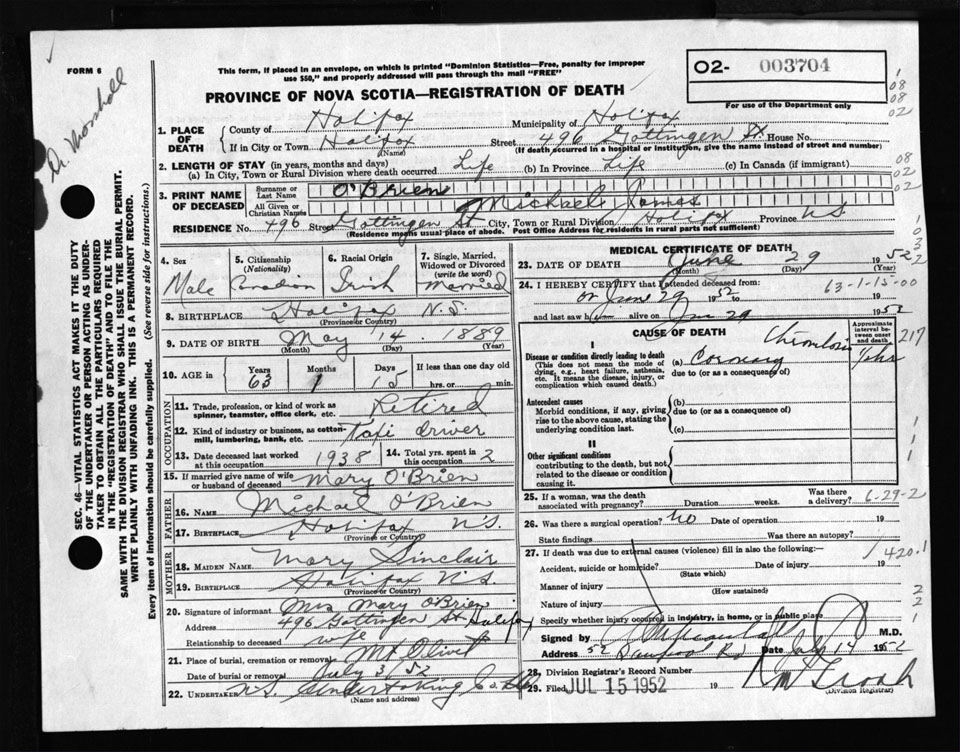 FORM 6
Dr. Marshall
This form, if placed in an envelope, on which is printed "Dominion Statistics—Free, penalty for improper
use $50," and properly addressed will pass through the mail "FREE"
PROVINCE OF NOVA SCOTIA—REGISTRATION OF DEATH
02- 003704
For use of the Department only
08
08
02
1. PLACE OF DEATH
County of Halifax Municipality of Halifax
If in City or Town Halifax (Name) Street 496 Gottingen St House No.
(If death occurred in a hospital or institution, give the name instead of street and number)
2. LENGTH OF STAY (in years, months and days)
(a) In City, Town or Rural Division where death occurred Life (b) In Province Life (c) In Canada (if immigrant)
08
02
3. PRINT NAME OF DECEASED
Surname or Last Name O'Brien
All Given or Christian Names Michael James
RESIDENCE No. 496 Street Gottingen St City, Town or Rural Division Halifax Province NS
(Residence means usual place of abode. Post Office Address for residents in rural parts not sufficient)
4. Sex Male
5. Citizenship (Nationality) Canadian
6. Racial Origin Irish
7. Single, Married, Widowed or Divorced (write the word) Married
8. BIRTHPLACE Halifax N.S.
(Province or Country)
9. DATE OF BIRTH May 14 1889
(Month) (Day) (Year)
10. AGE in Years 63 Months 1 Days 15 If less than one day
hrs. or min.
OCCUPATION
11. Trade, profession, or kind of work as spinner, teamster, office clerk, etc. Retired
12. Kind of industry or business, as cotton-mill, lumbering, bank, etc. Taxi driver
13. Date deceased last worked at this occupation 1938
14. Total yrs. spent in this occupation 2
15. If married give name of wife or husband of deceased Mary O'Brien
FATHER
16. NAME Michael O'Brien
17. BIRTHPLACE Halifax N.S.
(Province or Country)
MOTHER
18. MAIDEN NAME Mary Sinclair
19. BIRTHPLACE Halifax N.S.
(Province or Country)
20. Signature of informant Mrs Mary O'Brien
Address 496 Gottingen St Halifax
Relationship to deceased wife
21. Place of burial, cremation or removal Mt Olivet
Date of burial or removal July 3/52
22. UNDERTAKER N.S. Undertaking Co. Ltd
(Name and address)
MEDICAL CERTIFICATE OF DEATH
23. DATE OF DEATH June 29 1952
(Month) (Day) (Year)
24. I HEREBY CERTIFY that I attended deceased from:
63-1-15-00
on June 29 1952
and last saw him alive on June 29 1952
CAUSE OF DEATH
Approximate interval between onset and death
217
I
Disease or condition directly leading to death
(This does not mean the mode of dying, e.g., heart failure, asthenia, etc. It means the disease, injury, or complication which caused death.)
(a) Coronary Thrombosis
due to (or as a consequence of)
Antecedent causes
Morbid conditions, if any, giving rise to the above cause, stating the underlying condition last.
(b)
due to (or as a consequence of)
(c)
II
Other significant conditions
contributing to the death, but not related to the disease or condition causing it.
25. If a woman, was the death associated with pregnancy? Duration weeks. Was there a delivery?
6-29-2
26. Was there a surgical operation? NO Date of operation 19
State findings Was there an autopsy?
27. If death was due to external causes (violence) fill in also the following:—
420.1
Accident, suicide or homicide? Date of injury 19
(State which)
Manner of injury
(How sustained)
Nature of injury
Specify whether injury occurred in industry, in home, or in public place
Signed by M.D.
Address 52 Rd Date July 14 1952
28. Division Registrar's Record Number
29. Filed JUL 15 1952 19
(Division Registrar)
SEC. 46—VITAL STATISTICS ACT MAKES IT THE DUTY
OF THE UNDERTAKER OR PERSON ACTING AS UNDER-
TAKER TO OBTAIN ALL THE PARTICULARS REQUIRED
IN THE "REGISTRATION OF DEATH" AND TO FILE THE
SAME WITH THE DIVISION REGISTRAR WHO SHALL ISSUE THE BURIAL PERMIT.
WRITE PLAINLY WITH UNFADING INK. THIS IS A PERMANENT RECORD.
Every item of information should be carefully supplied. (See reverse side for instructions.)